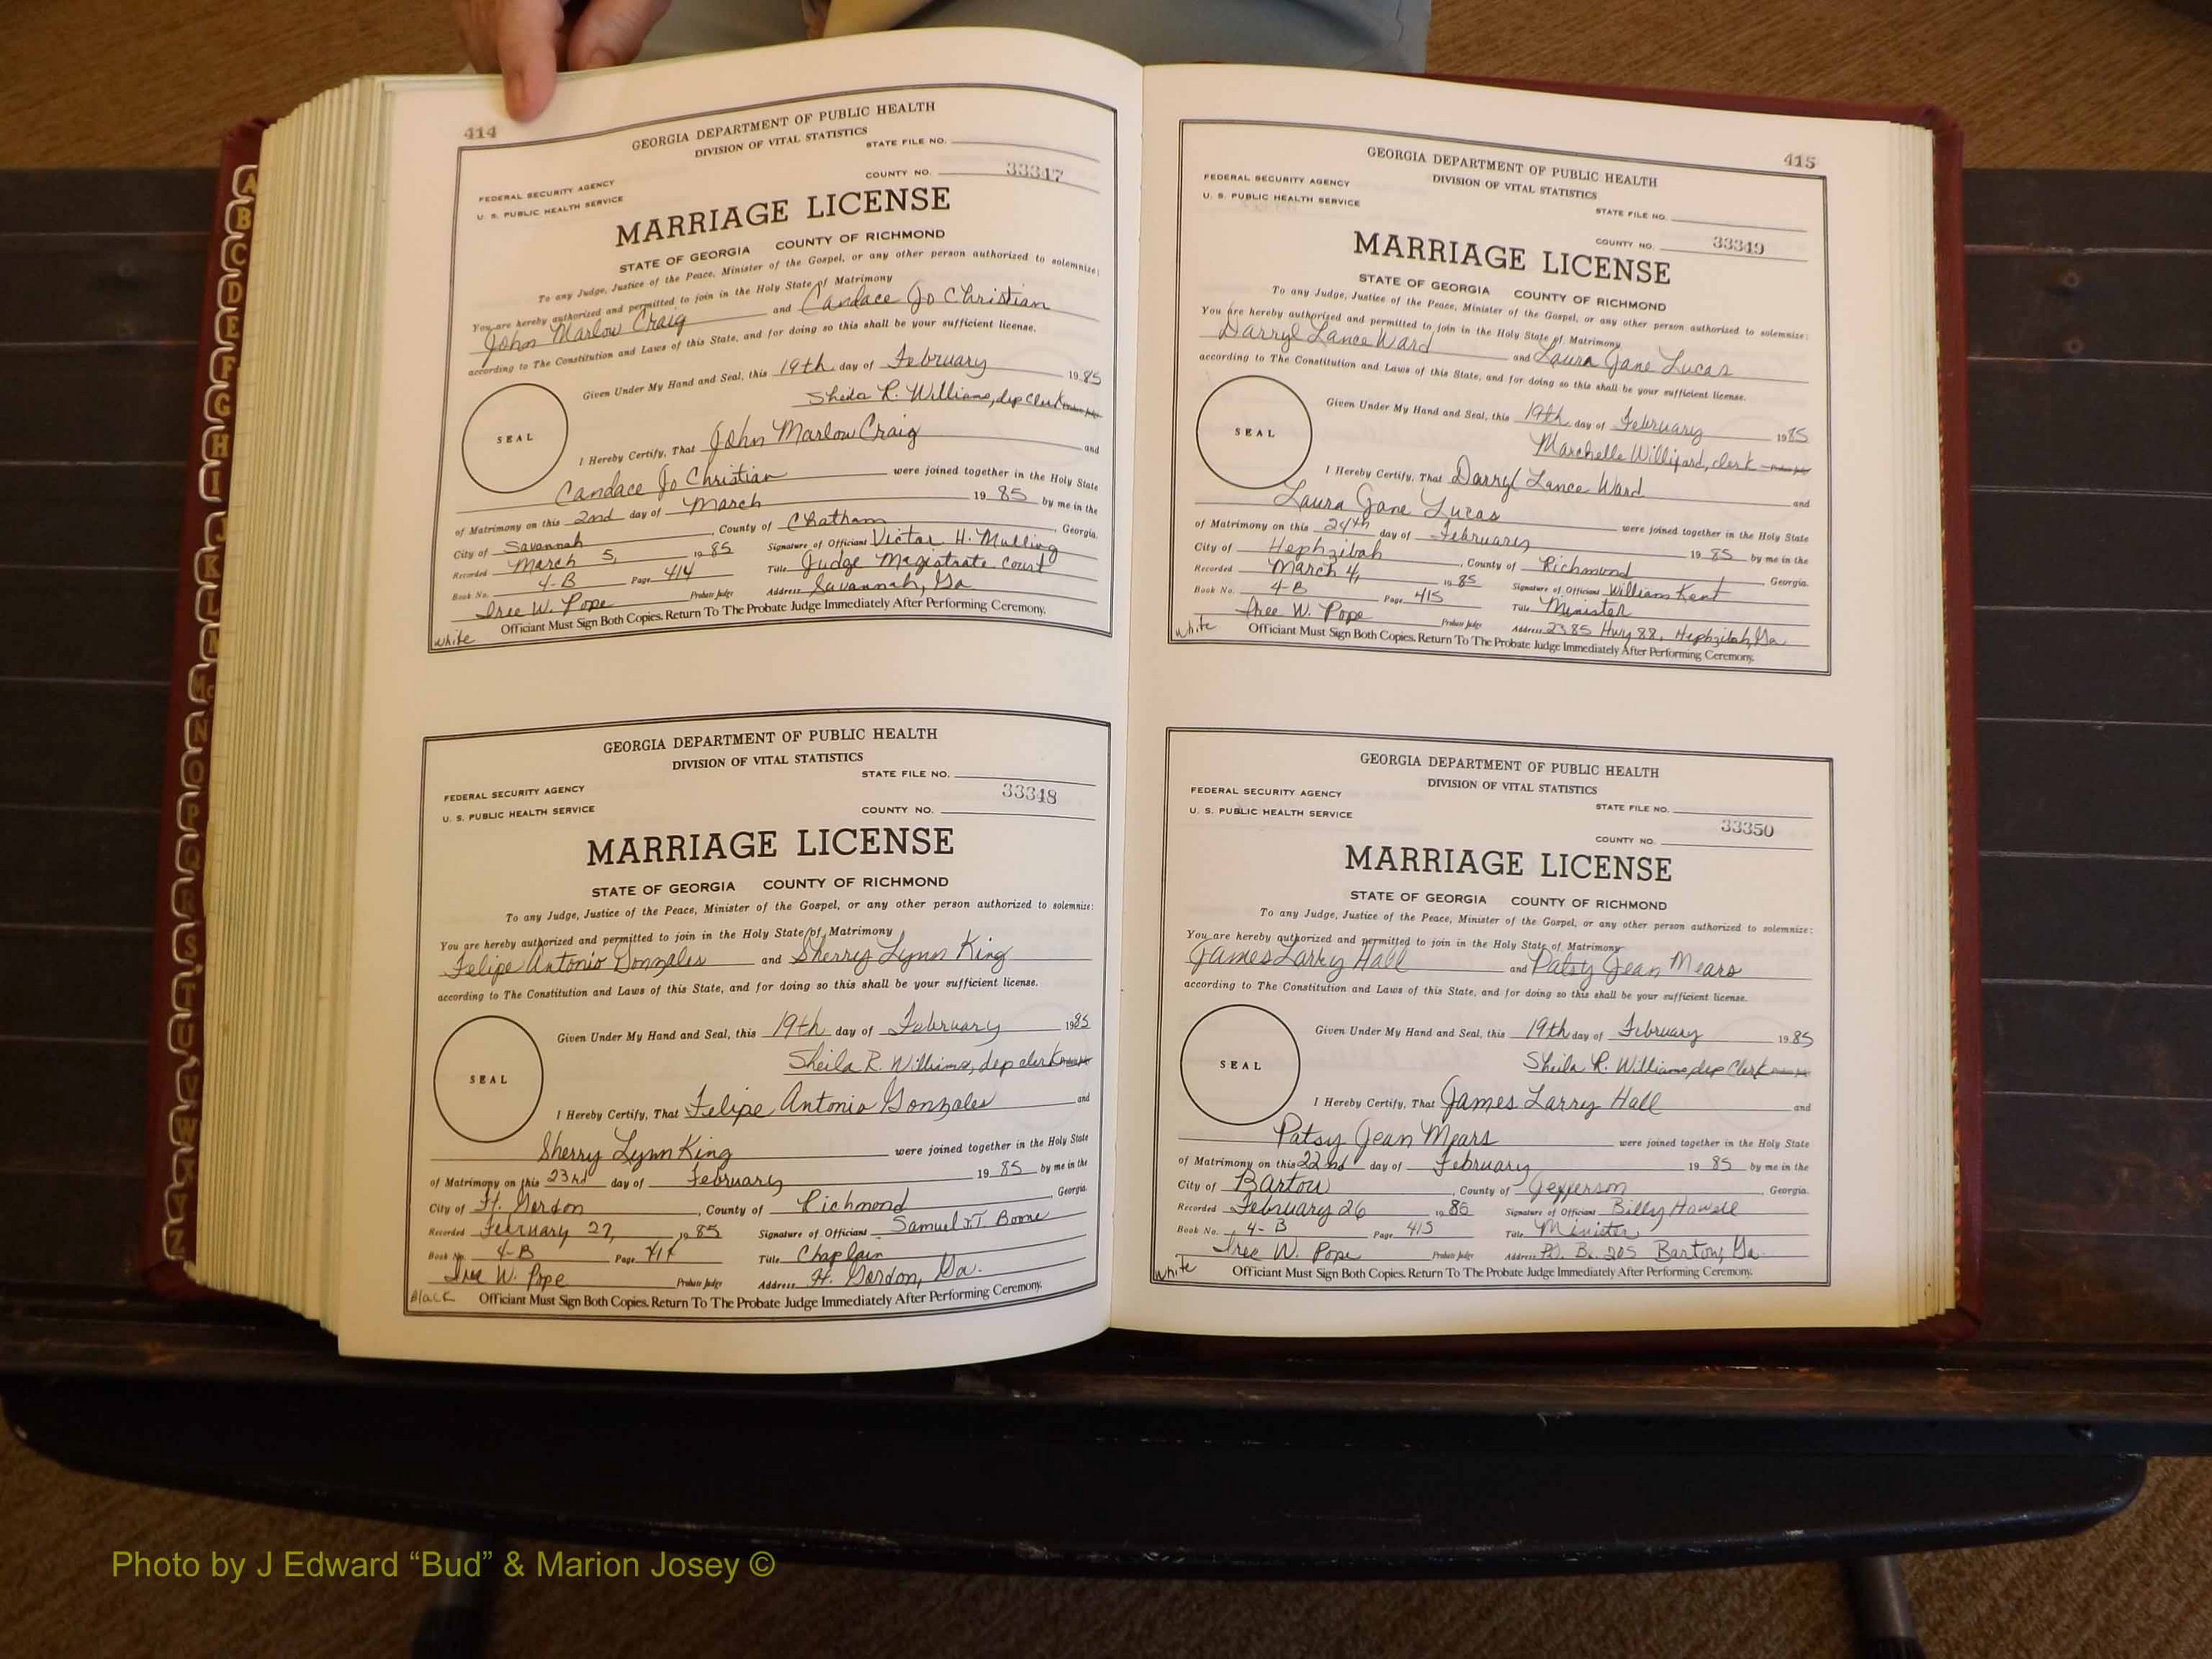 414
GEORGIA DEPARTMENT OF PUBLIC HEALTH
DIVISION OF VITAL STATISTICS
STATE FILE NO.
COUNTY NO. 33347
FEDERAL SECURITY AGENCY
U. S. PUBLIC HEALTH SERVICE
MARRIAGE LICENSE
STATE OF GEORGIA COUNTY OF RICHMOND
To any Judge, Justice of the Peace, Minister of the Gospel, or any other person authorized to solemnize:
You are hereby authorized and permitted to join in the Holy State of Matrimony
John Marlow Craig and Candace Jo Christian
according to The Constitution and Laws of this State, and for doing so this shall be your sufficient license.
Given Under My Hand and Seal, this 19th day of February 1985
Sheila R. Williams, dep clerk Probate Judge
SEAL
I Hereby Certify, That John Marlow Craig and
Candace Jo Christian were joined together in the Holy State
of Matrimony on this 2nd day of March 19 85 by me in the
City of Savannah, County of Chatham, Georgia.
Recorded March 5, 19 85 Signature of Officiant Victor H. Mulling
Book No. 4-B Page 414 Title Judge Magistrate Court
Iree W. Pope Probate Judge Address Savannah, Ga
White Officiant Must Sign Both Copies. Return To The Probate Judge Immediately After Performing Ceremony.
GEORGIA DEPARTMENT OF PUBLIC HEALTH
DIVISION OF VITAL STATISTICS
STATE FILE NO.
FEDERAL SECURITY AGENCY
33348
U. S. PUBLIC HEALTH SERVICE
COUNTY NO.
MARRIAGE LICENSE
STATE OF GEORGIA COUNTY OF RICHMOND
To any Judge, Justice of the Peace, Minister of the Gospel, or any other person authorized to solemnize:
You are hereby authorized and permitted to join in the Holy State of Matrimony
Felipe Antonio Gonzales and Sherry Lynn King
according to The Constitution and Laws of this State, and for doing so this shall be your sufficient license.
Given Under My Hand and Seal, this 19th day of February 1985
Sheila R. Williams, dep clerk Probate Judge
SEAL
I Hereby Certify, That Felipe Antonio Gonzales and
Sherry Lynn King were joined together in the Holy State
of Matrimony on this 23rd day of February 19 85 by me in the
City of Ft. Gordon, County of Richmond, Georgia.
Recorded February 27, 19 85 Signature of Officiant Samuel Boone
Book No. 4-B Page 414 Title Chaplain
Iree W. Pope Probate Judge Address Ft. Gordon, Ga.
Black Officiant Must Sign Both Copies. Return To The Probate Judge Immediately After Performing Ceremony.
415
GEORGIA DEPARTMENT OF PUBLIC HEALTH
DIVISION OF VITAL STATISTICS
FEDERAL SECURITY AGENCY
U. S. PUBLIC HEALTH SERVICE
STATE FILE NO.
COUNTY NO. 33349
MARRIAGE LICENSE
STATE OF GEORGIA COUNTY OF RICHMOND
To any Judge, Justice of the Peace, Minister of the Gospel, or any other person authorized to solemnize:
You are hereby authorized and permitted to join in the Holy State of Matrimony
Darryl Lance Ward and Laura Jane Lucas
according to The Constitution and Laws of this State, and for doing so this shall be your sufficient license.
Given Under My Hand and Seal, this 19th day of February 1985
Marchelle Williford, clerk Probate Judge
SEAL
I Hereby Certify, That Darryl Lance Ward and
Laura Jane Lucas were joined together in the Holy State
of Matrimony on this 24th day of February 19 85 by me in the
City of Hephzibah, County of Richmond, Georgia.
Recorded March 4, 19 85 Signature of Officiant William Kent
Book No. 4-B Page 415 Title Minister
Iree W. Pope Probate Judge Address 2385 Hwy 88, Hephzibah, Ga
White Officiant Must Sign Both Copies. Return To The Probate Judge Immediately After Performing Ceremony.
GEORGIA DEPARTMENT OF PUBLIC HEALTH
DIVISION OF VITAL STATISTICS
FEDERAL SECURITY AGENCY
STATE FILE NO.
U. S. PUBLIC HEALTH SERVICE
33350
COUNTY NO.
MARRIAGE LICENSE
STATE OF GEORGIA COUNTY OF RICHMOND
To any Judge, Justice of the Peace, Minister of the Gospel, or any other person authorized to solemnize:
You are hereby authorized and permitted to join in the Holy State of Matrimony
James Larry Hall and Patsy Jean Mears
according to The Constitution and Laws of this State, and for doing so this shall be your sufficient license.
Given Under My Hand and Seal, this 19th day of February 1985
Sheila R. Williams, dep Clerk Probate Judge
SEAL
I Hereby Certify, That James Larry Hall and
Patsy Jean Mears were joined together in the Holy State
of Matrimony on this 22nd day of February 19 85 by me in the
City of Bartow, County of Jefferson, Georgia.
Recorded February 26 19 85 Signature of Officiant Billy Howell
Book No. 4-B Page 415 Title Minister
Iree W. Pope Probate Judge Address P.O. Bx. 205 Bartow, Ga
White Officiant Must Sign Both Copies. Return To The Probate Judge Immediately After Performing Ceremony.
A
B
C
D
E
F
G
H
I
J
K
L
M
Mc
N
O
P
Q
R
S
T
U
V
W
Y
Z
Photo by J Edward “Bud” & Marion Josey ©